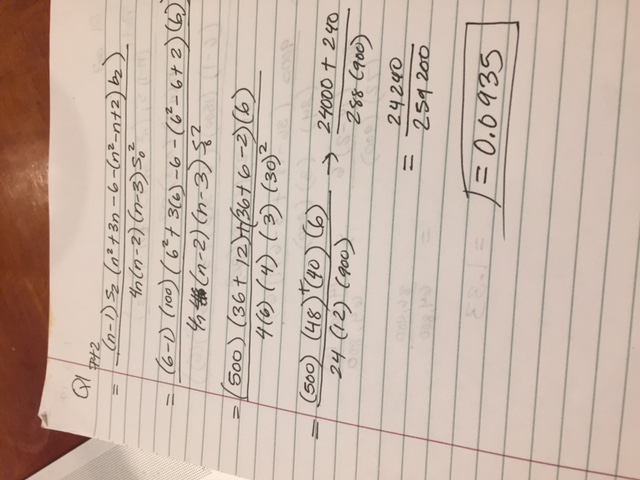 Q1
7+2
= (n-1) S₂ (n² + 3n - 6 - (n² - n + 2) b₂) / 4n (n-2) (n-3) S₀²
= (6-1) (100) (6² + 3(6) - 6 - (6² - 6 + 2) (6) / 4n (n-2) (n-3) S₀²
= (500) (36 + 12) + (36 + 6 - 2) (6) / 4(6) (4) (3) (30)²
= (500) (48) + (40) (6) / 24 (12) (900) → 24000 + 240 / 288 (900)
= 24240 / 259200
= 0.0935